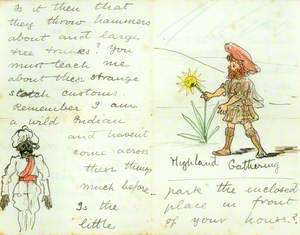 Is it then that
they throw hammers
about and large
tree trunks? You
must teach me
about these strange
scotch customs.
Remember I am
a wild Indian
and haven't
come across
these things
much before.
Is the
"little
Highland Gathering
park" the enclosed
place in front
of your house?